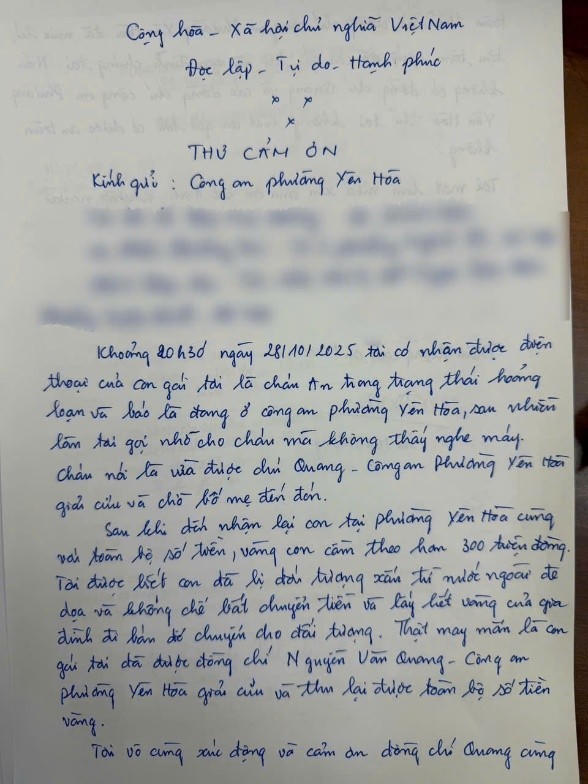 Cộng hòa - Xã hội chủ nghĩa Việt Nam
Độc lập - Tự do - Hạnh phúc
THƯ CẢM ƠN
Kính gửi : Công an phường Yên Hòa
Khoảng 20h30 ngày 28/10/2025 tôi có nhận được điện
thoại của con gái tôi là cháu An trong trạng thái hoảng
loạn và báo là đang ở công an phường Yên Hòa, sau nhiều
lần tôi gọi nhỡ cho cháu mà không thấy nghe máy.
Cháu nói là vừa được chú Quang - Công an Phường Yên Hòa
giải cứu và chờ bố mẹ đến đón.
Sau khi đến nhận lại con tại phường Yên Hòa cùng
với toàn bộ số tiền, vàng con cầm theo hơn 300 triệu đồng.
Tôi được biết con đã bị đối tượng xấu từ nước ngoài đe
dọa và khống chế bắt chuyển tiền và lấy hết vàng của gia
đình đi bán để chuyển cho đối tượng. Thật may mắn là con
gái tôi đã được đồng chí Nguyễn Văn Quang - Công an
phường Yên Hòa giải cứu và thu lại được toàn bộ số tiền
vàng.
Tôi vô cùng xúc động và cảm ơn đồng chí Quang cùng